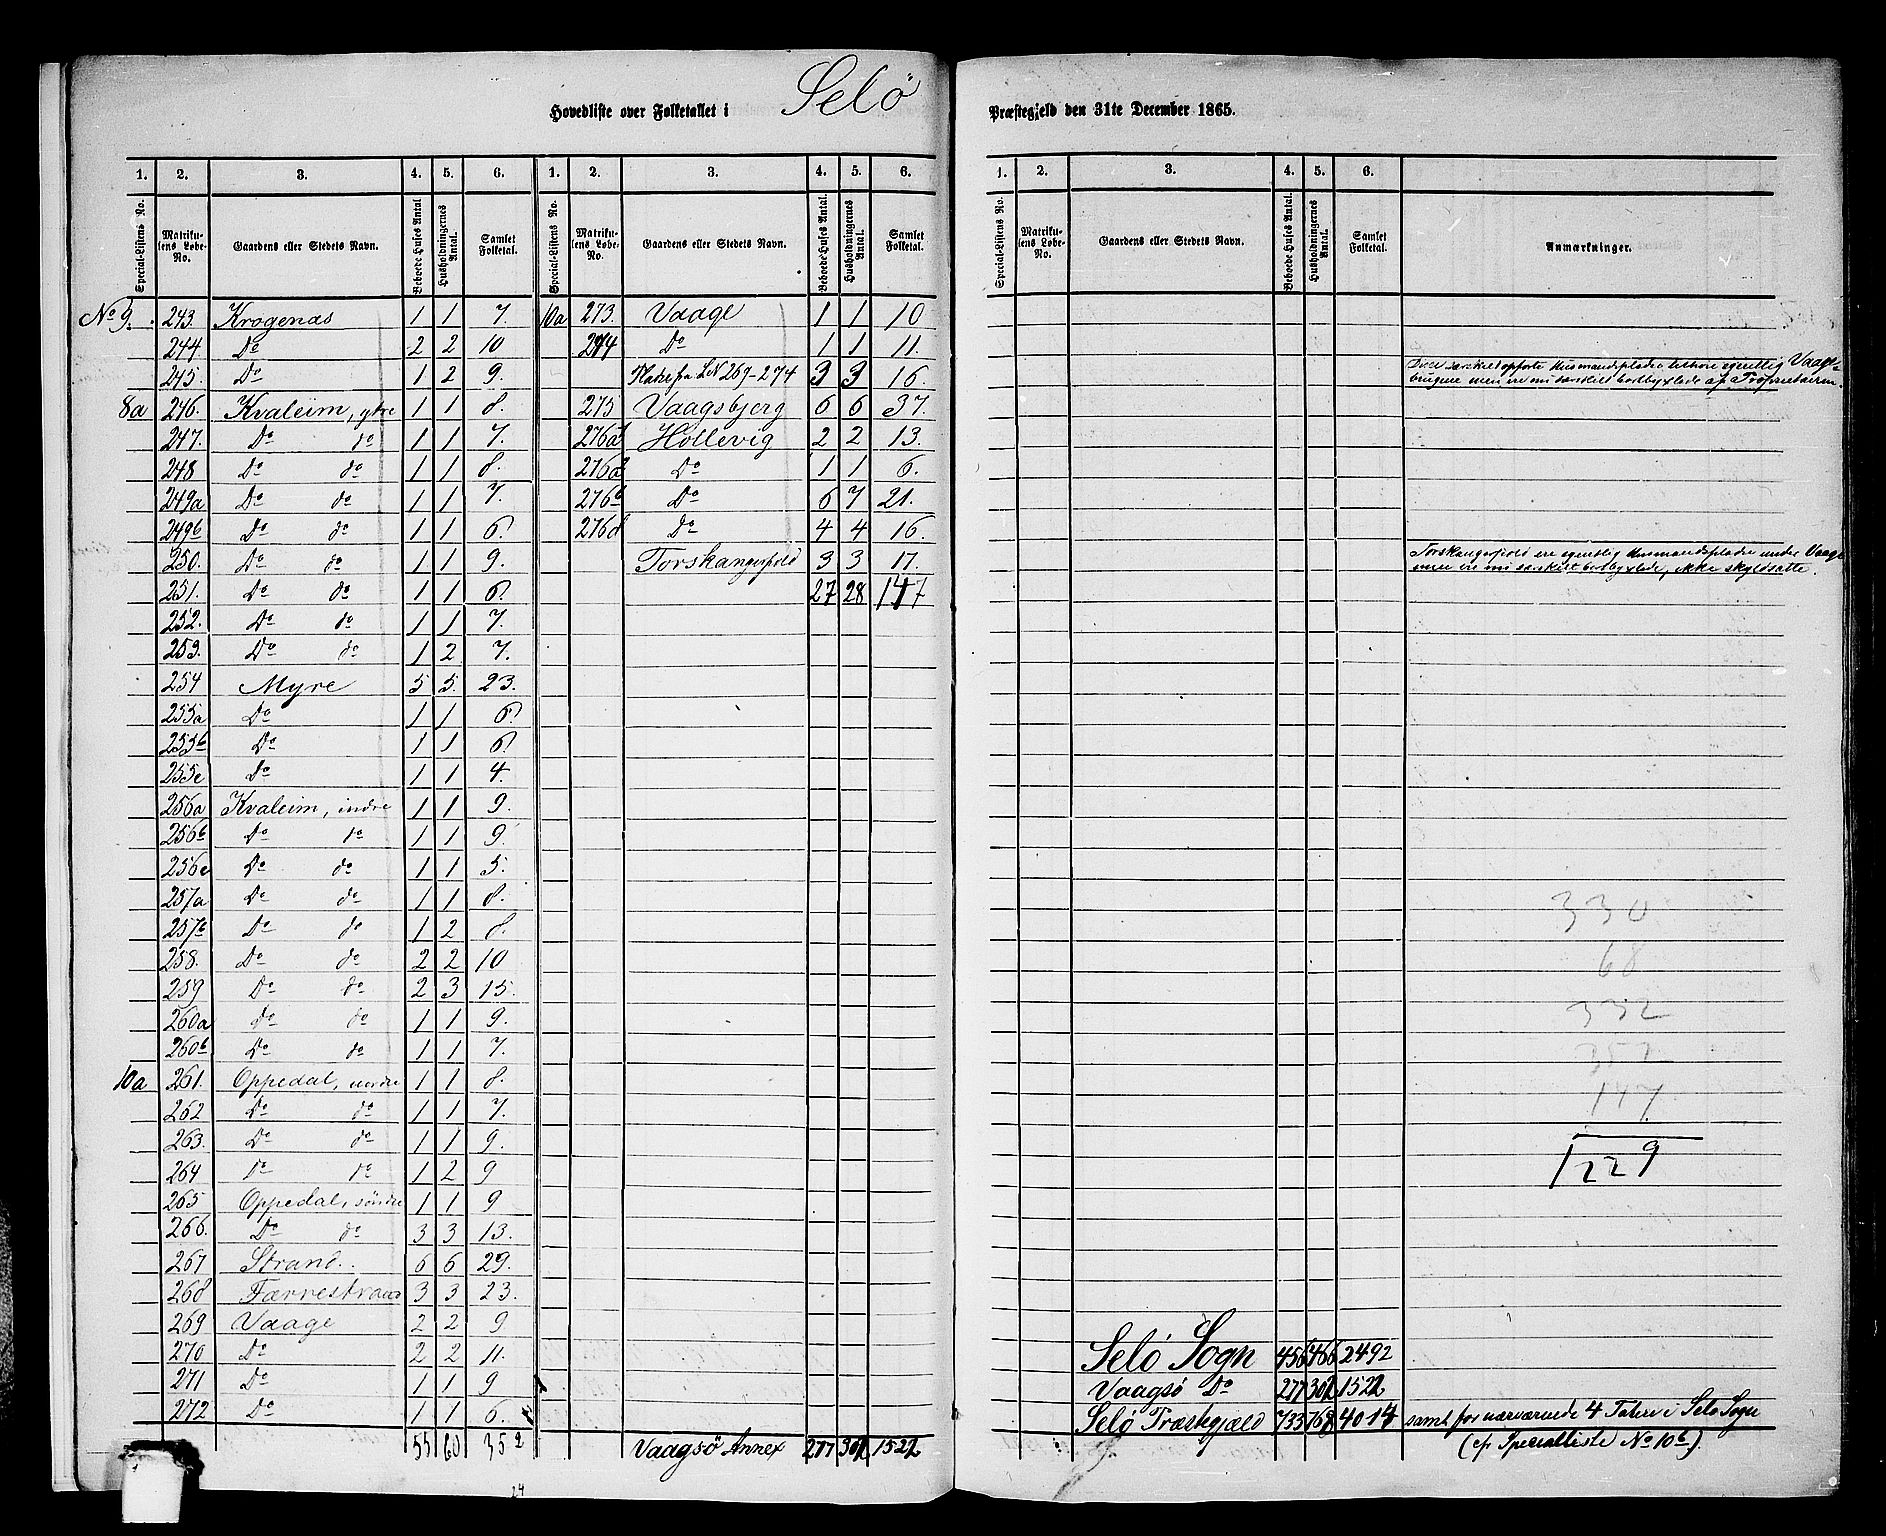 Selö
Hovedliste over Folketallet i
Præstegjeld den 31te December 1865.
1. 2. 3. 4. 5. 6. 1. 2. 3. 4. 5. 6.
Special-Listens No. Matrikulens Løbe-No. Gaardens eller Stedets Navn. Beboede Huses Antal Husholdningernes Antal. Samlet Folketal. Special-Listens No. Matrikulens Løbe-No. Gaardens eller Stedets Navn. Beboede Huses Antal. Husholdningernes Antal. Samlet Folketal.
No 9. 243. Krogenæs 1 1 7.
244. Do 2 2 10
245. Do 1 2 9.
8a 246. Kvaleim, ytre 1 1 8.
247. Do do 1 1 7.
248 Do do 1 1 8.
249a Do do 1 1 7.
249b Do do 1 1 6.
250. Do do 1 1 9.
251. Do do 1 1 6.
252. Do do 1 1 7.
253. Do do 1 2 7.
254 Myre 5 5. 23.
255a Do 1 1 6.
255b Do 1 1 6.
255c Do 1 1 4.
256a Kvaleim, indre 1 1 9.
256b Do do 1 1 9.
256c Do do 1 1 5.
257a Do do 1 1 8.
257b Do do 1 2 8.
258. Do do 2 2 10
259 Do do 2 3 15.
260a Do do 1 1 9.
260b Do do 1 1 7.
10a 261. Oppedal, nordre 1 1 8.
262 Do do 1 1 7.
263. Do do 1 1 9.
264 Do do 1 2 9
265 Oppedal, söndre 1 1 9
266. Do do 3 3 13.
267 Strand. 6 6 29.
268 Færrestrand 3 3 23.
269 Vaage 2 2 9
270 Do 2 2 11.
271 Do 1 1 9
272 Do 1 1 6.
55 60 352
10a 273. Vaage 1 1 10
274 Do 1 1 11.
Pladse fra LN 269-274 3 3 16.
275 Vaagsbjerg 6 6 37.
276a Hollevig 2 2 13.
276a Do 1 1 6.
276b Do 6 7 21.
276d Do 4 4 16.
Torskangerpold 3 3 17.
27 28 147
Vaagsö Annex 277 302 1522
24
1. 2. 3. 4. 5. 6.
Special-Listens No. Matrikulens Løbe-No. Gaardens eller Stedets Navn. Beboede Huses Antal. Husholdningernes Antal. Samlet Folketal. Anmærkninger.
Disse særskilt opförte Husmandspladse tilhöre egentlig Vaags-
brugene men ere nu særskilt bortbyxlede af Proprietairen.
Torskangerpold ere egentlig Husmandspladse under Vaage
men ere nu særskilt bortbyxlede, ikke skyldsatte.
330
68
332
352
147
1229
Selö Sogn 456 466 2492
Vaagsö Do 277 302 1522
Selö Præstegjæld 733 768 4014 samt for nærværende 4 Tatere i Selö Sogn
(cf Specialliste No 10b).